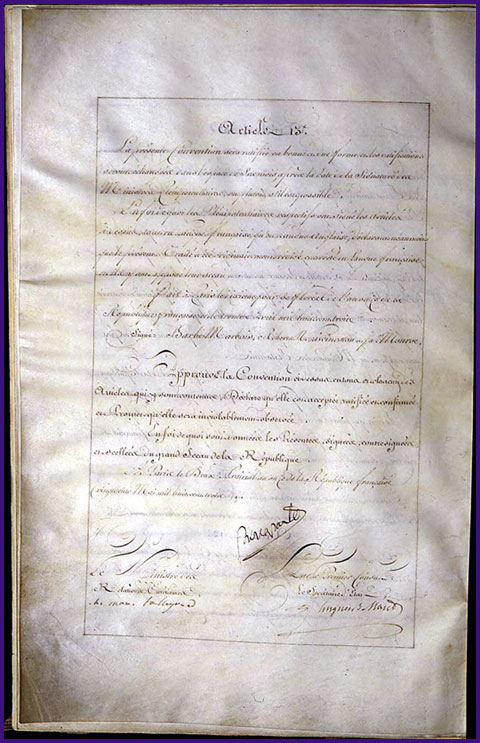 Article 13.e
La présente Convention sera ratifiée en bonne et due forme et les ratifications
seront échangées dans l'espace de Six mois après la date de la Signature des
Ministres Plénipotentiaires, ou plutôt s'il est possible.
En foi de quoi les Plénipotentiaires respectifs ont signé les articles
ci-dessus tant en langue française qu'en langue anglaise, déclarant néanmoins
que le présent Traité a été originairement rédigé et arrêté en langue française,
et ils y ont apposé leur sceau.
Fait à Paris le dixième jour de floréal de l'an onze de la
République française, et le trente Avril mil huit cent trois.
Signé Barbé Marbois, Robert R. Livingston et Ja.s Monroe,
Approuve la Convention ci-dessus en tous et chacun des
Articles qui y sont contenus, Déclare qu'elle est acceptée, ratifiée et confirmée
et Promet qu'elle sera inviolablement observée.
En foi de quoi sont données les Présentes, signées, contresignées
et scellées du grand Sceau de la République
à Paris le Deux Prairial an onze de la République française
Mai mil huit cent trois
Bonaparte
Le Ministre des Relations Extérieures
ch. mau. Talleyrand
Par le Premier Consul
Le Secrétaire d'Etat
Hugues B. Maret